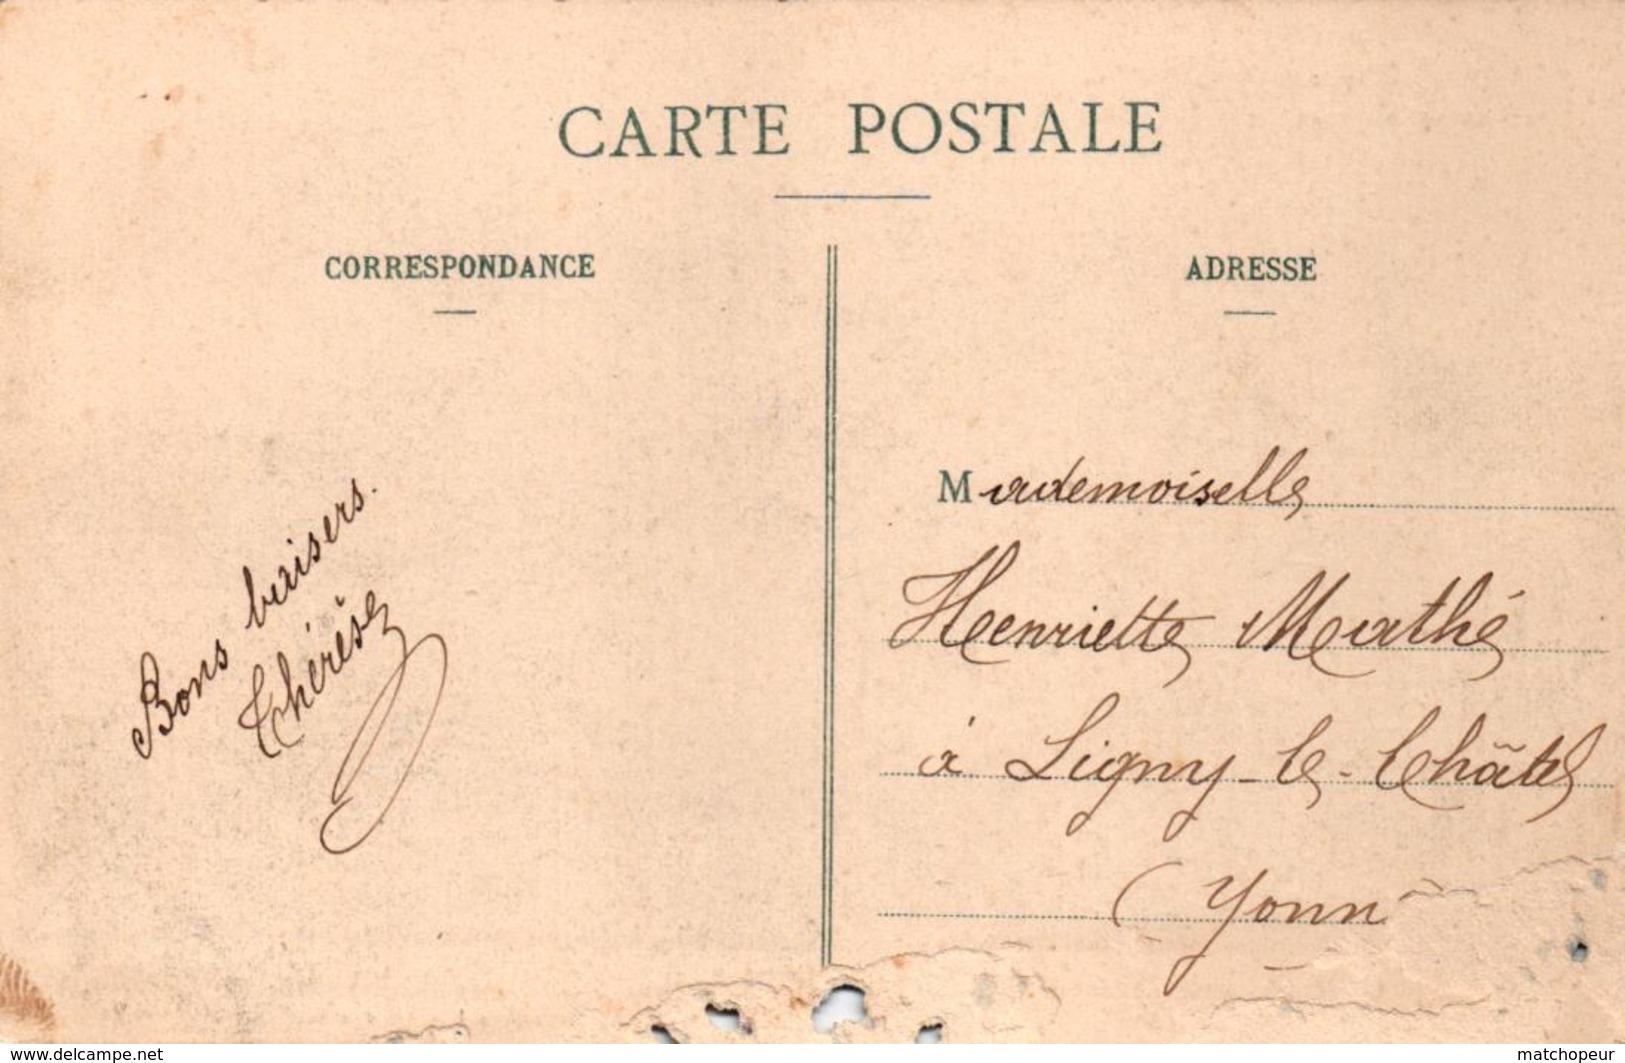 CARTE POSTALE
CORRESPONDANCE
ADRESSE
Bons baisers.
Thérèse
Mademoiselle
Henriette Mathé
à Ligny-le-Châtel
(Yonn
www.delcampe.net
matchopeur